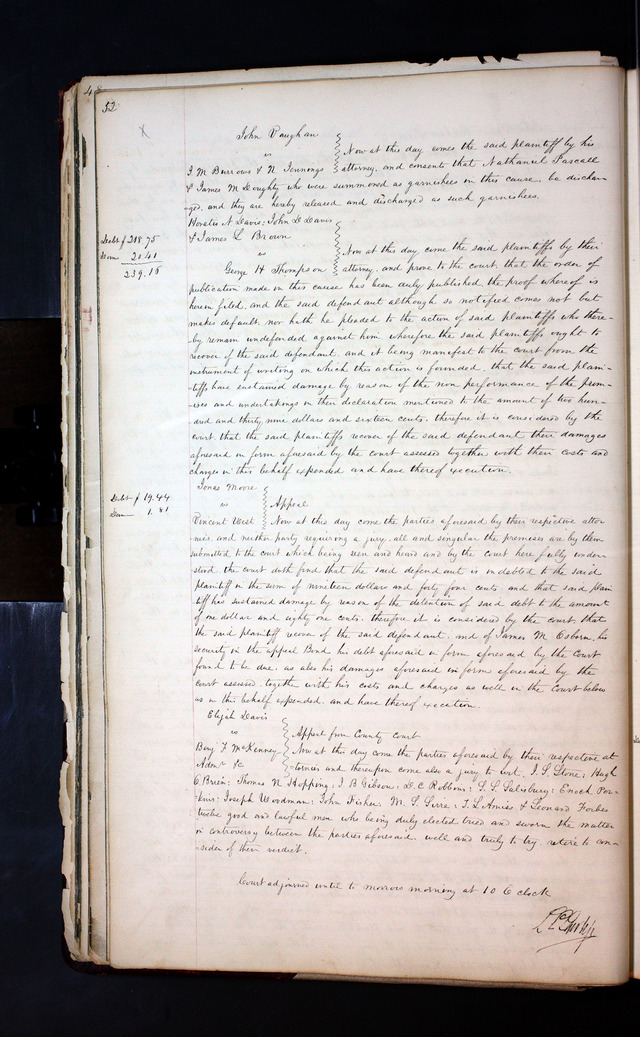 48
52
John Vaughan
vs
Now at this day comes the said plaintiff by his
J M Burrows & N. Jennings attorney, and consents that Nathaniel Pascall
& James M Doughty who were summoned as garnishees in this cause, be dischar-
ged, and they are hereby released and discharged as such garnishees.
Horatio N Davis: John D Davis
& James L Brown
Debt $ 218.75
Dam 20.41
239.16
vs
Now at this day come the said plaintiffs by their
George H Thompson attorney, and prove to the court, that the order of
publication made in this cause has been duly published, the proof whereof is
herein filed, and the said defendant although so notified comes not but
makes default, nor hath he pleaded to the action of said plaintiffs who there-
by remain undefended against him, wherefore the said plaintiffs ought to
recover of the said defendant, and it being manifest to the court from the
instrument of writing on which this action is founded, that the said plain-
tiffs have sustained damage by reason of the non performance of the prom-
ises and undertakings in their declaration mentioned to the amount of two hun-
dred and thirty nine dollars and sixteen cents, therefore it is considered by the
court, that the said plaintiffs recover of the said defendant their damages
aforesaid in form aforesaid by the court assessed together with their costs and
charges in this behalf expended and have thereof execution.
Jonas Moore
Debt $ 19.44
Dam 1.81
vs Appeal
Vincent West Now at this day come the parties aforesaid by their respective attor
nies, and neither party requiring a jury, all and singular the premises are by them
submitted to the court which being seen and heard and by the court here fully under-
stood, the court doth find that the said defendant is indebted to the said
plaintiff in the sum of nineteen dollars and forty four cents and that said plain
tiff has sustained damage by reason of the detention of said debt to the amount
of one dollar and eighty one cents, therefore it is considered by the court, that
the said plaintiff recover of the said defendant, and of James M. Osborn, his
security in the appeal Bond his debt aforesaid in form aforesaid by the Court
found to be due, as also his damages aforesaid in form aforesaid by the
court assessed, together with his costs and charges as well in the Court below
as in this behalf expended, and have thereof execution.
Elijah Davis
vs Appeal from County Court
Benj. F McKenney Now at this day come the parties aforesaid by their respective at
Admr &c tornies and thereupon come also a jury to wit, J. S. Stone: Hugh
O Brien: Thomas N Hopping: J. B Gibson: D. C Robbins: L L Salisbury: Enoch Per-
kins: Joseph Woodman: John Fisher: M. S. Serre: T. L Amiss & Leonard Forbes
twelve good and lawful men who being duly elected tried and sworn the matter
in controversy between the parties aforesaid well and truly to try, retire to con-
sider of their verdict.
Court adjourned until to morrow morning at 10 O clock